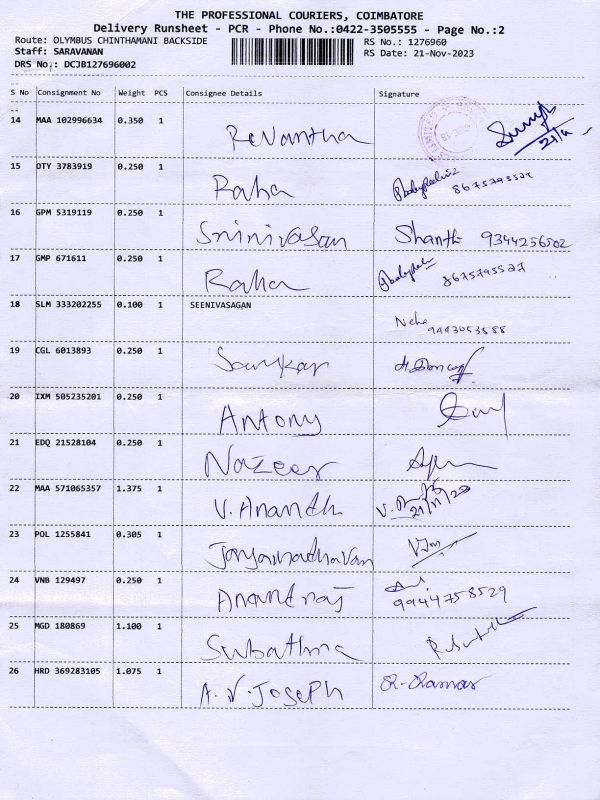 THE PROFESSIONAL COURIERS, COIMBATORE
Delivery Runsheet - PCR - Phone No.:0422-3505555 - Page No.:2
Route: OLYMBUS CHINTHAMANI BACKSIDE RS No.: 1276960
Staff: SARAVANAN RS Date: 21-Nov-2023
DRS No.: DCJB127696002
S No Consignment No Weight PCS Consignee Details Signature
14 MAA 102996634 0.350 1 Revantha
15 DTY 3783919 0.250 1 Raha
16 GPM 5319119 0.250 1 Srinivasan Shanthi 9344256502
17 GMP 671611 0.250 1 Raha 8675795527
18 SLM 333202255 0.100 1 SEENIVASAGAN Neha
19 CGL 6013893 0.250 1 Sankar
20 IXM 505235201 0.250 1 Antony
21 EDQ 21528104 0.250 1 Nazeer
22 MAA 571065357 1.375 1 V. Anandh 21/11/23
23 POL 1255841 0.305 1
24 VNB 129497 0.250 1 Anandraj 9944758529
25 MGD 180869 1.100 1 Subathma
26 HRD 369283105 1.075 1 A.V.Joseph